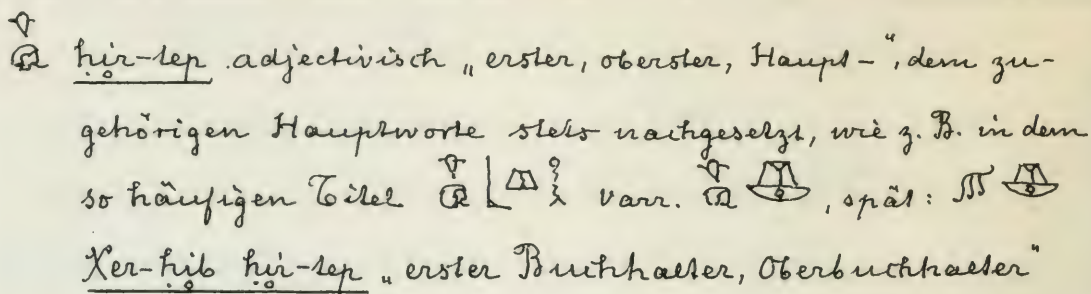 ḥir-tep adjectivisch „erster, oberster, Haupt-“, dem zu-
gehörigen Hauptworte stets nachgesetzt, wie z. B. in dem
so häufigen Titel varr. , spät:
Χer-ḥib ḥir-tep „erster Buchhalter, Oberbuchhalter“